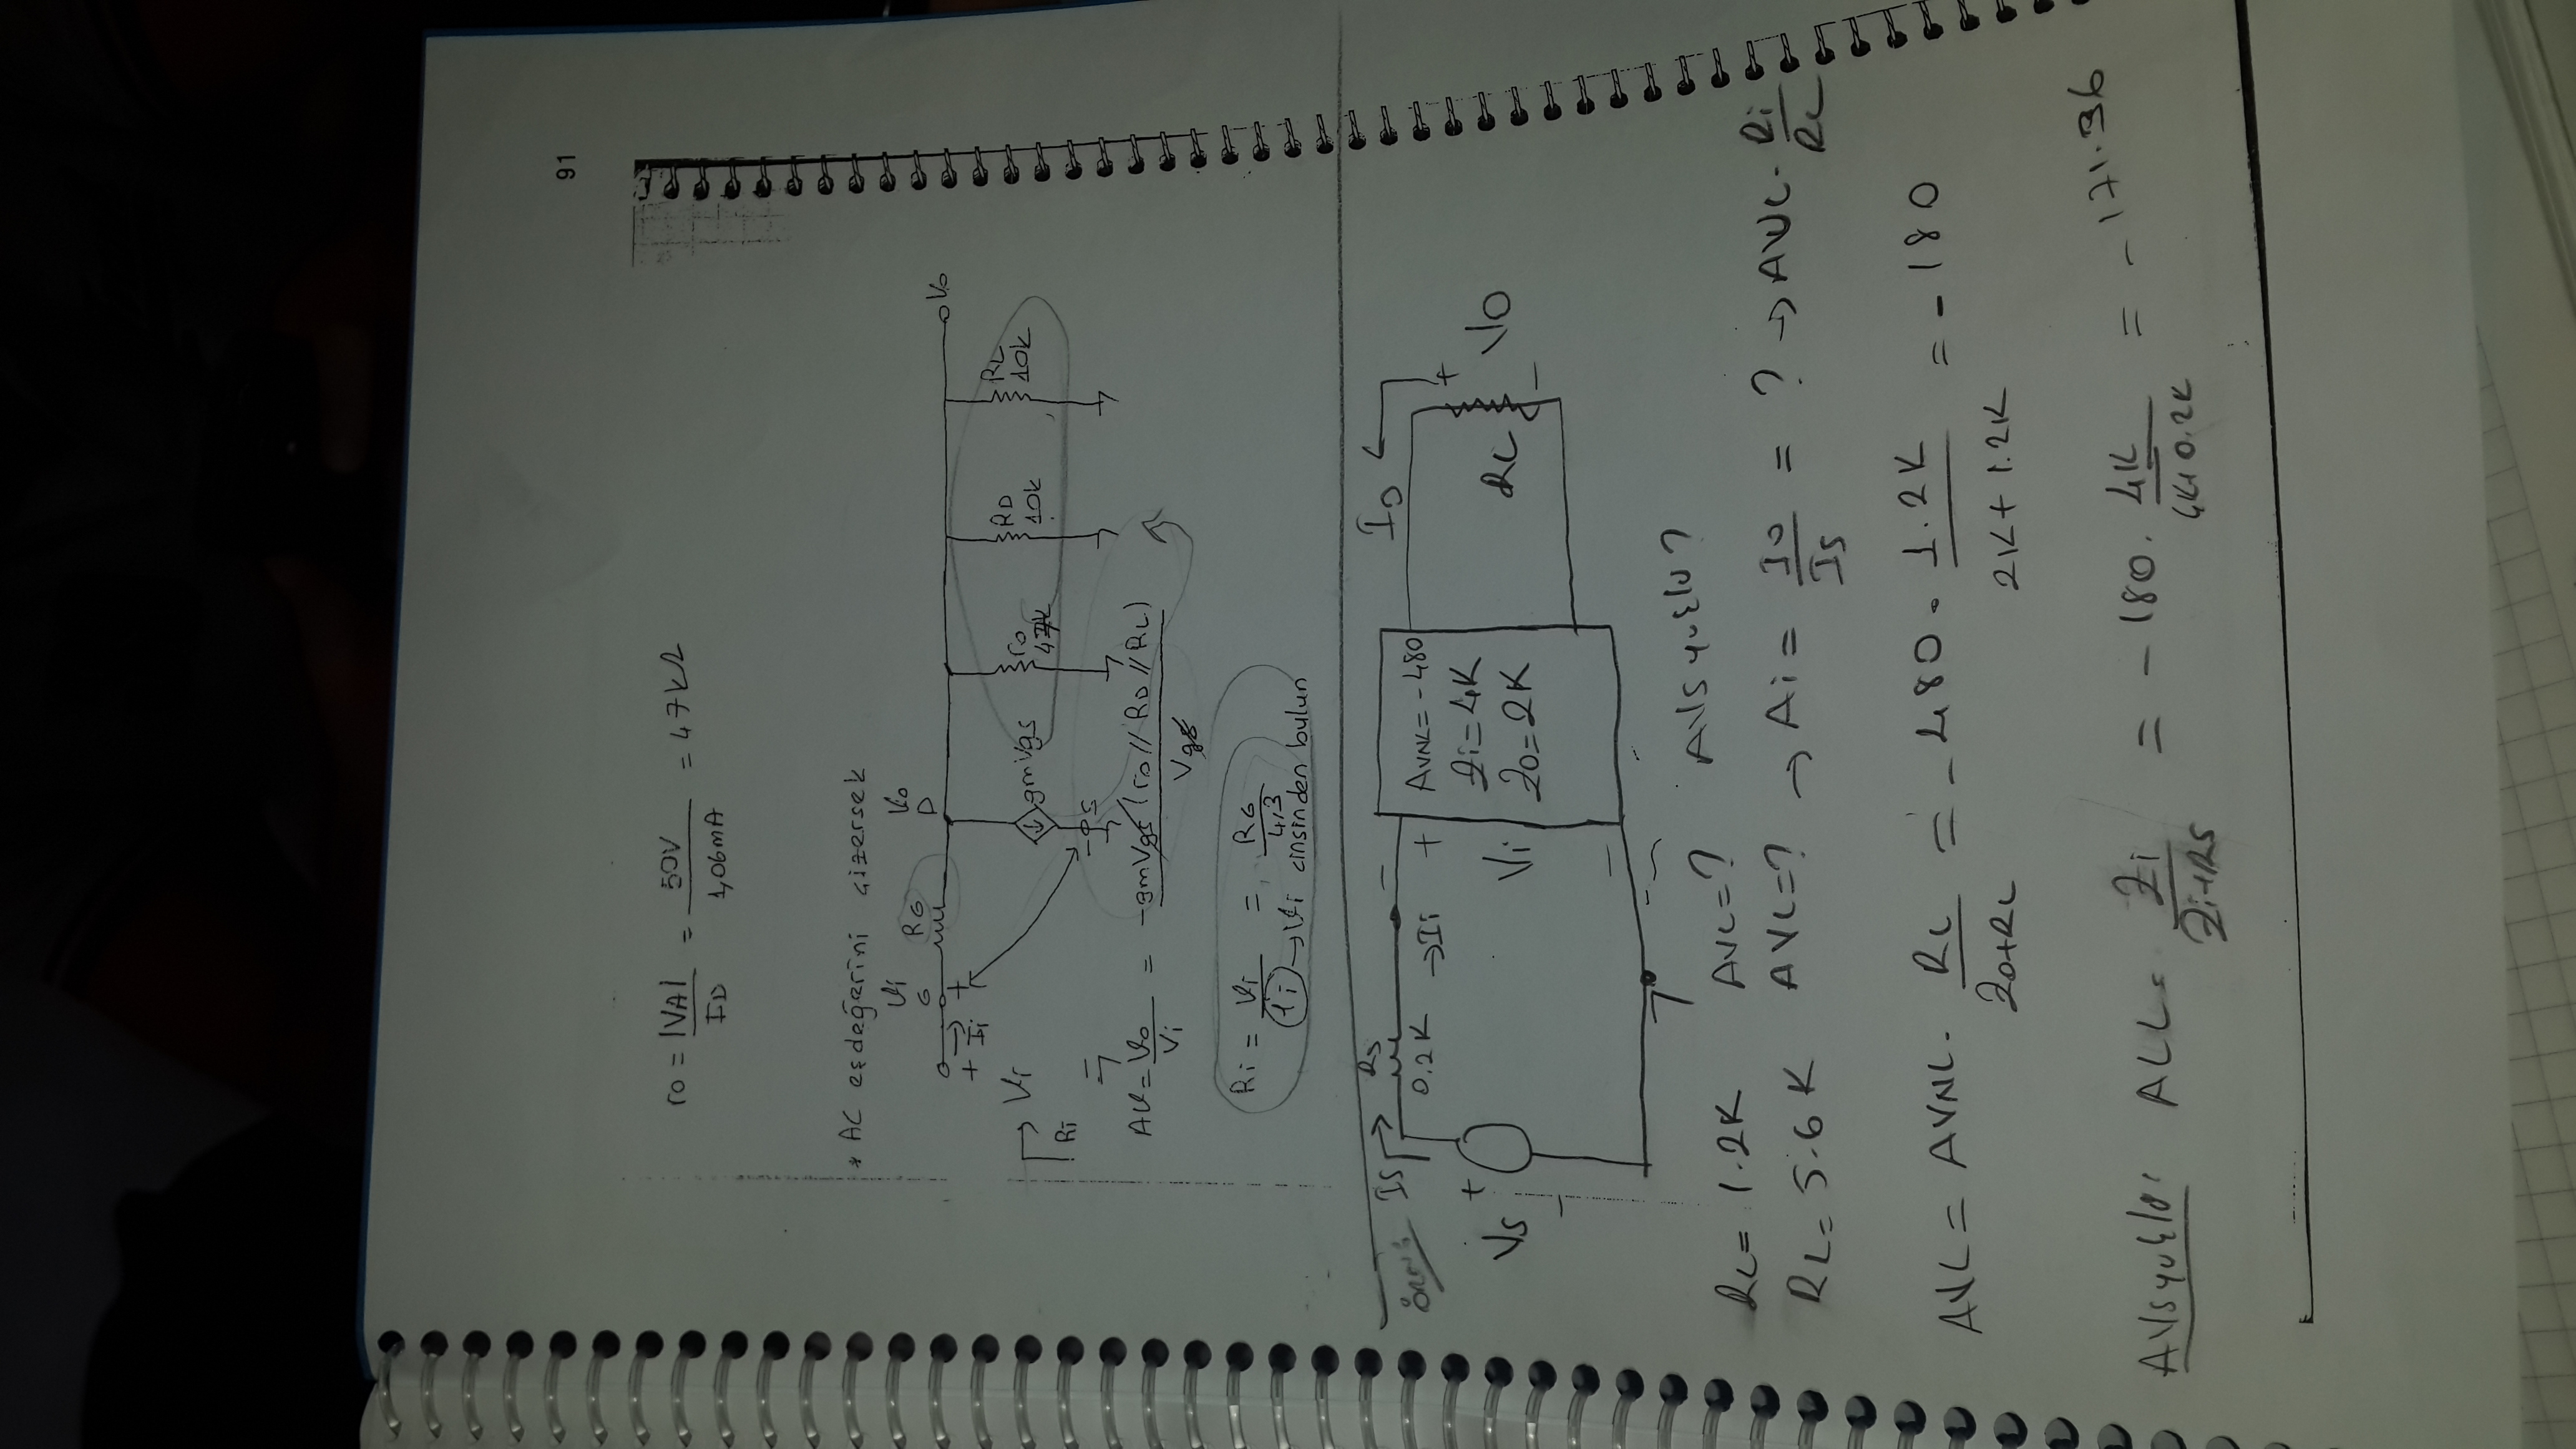 91
ro = |VA| / ID = 50V / 1,06mA = 47kΩ
* AC eşdeğerini çizersek
Vi Vo
G RG D
Vo
+ Ii +
Vi
Ri
gmVgs
ro 47k
RD 10k
RL 10k
- S
AV = Vo / Vi = -gmVgs (ro // RD // RL) / Vgs
Ri = Vi / Ii = RG / 4,3
→ Vi cinsinden bulun
ÖRN:
IS RS 0.2K → Ii
+ VS -
+ Vi -
AVNL = -480
Zi = 4K
Zo = 2K
IO
RL
+ VO -
RL = 1.2K AVL = ? AVS yüklü?
RL = 5.6K AVL = ? → Ai = IO / IS = ? → AVL . Ri / RL
AVL = AVNL . RL / Zo+RL = -480 . 1.2K / 2K + 1.2K = -180
AVS yüklü: ALL = Zi / Zi+RS = -180 . 4K / 4K+0.2K = -171.36